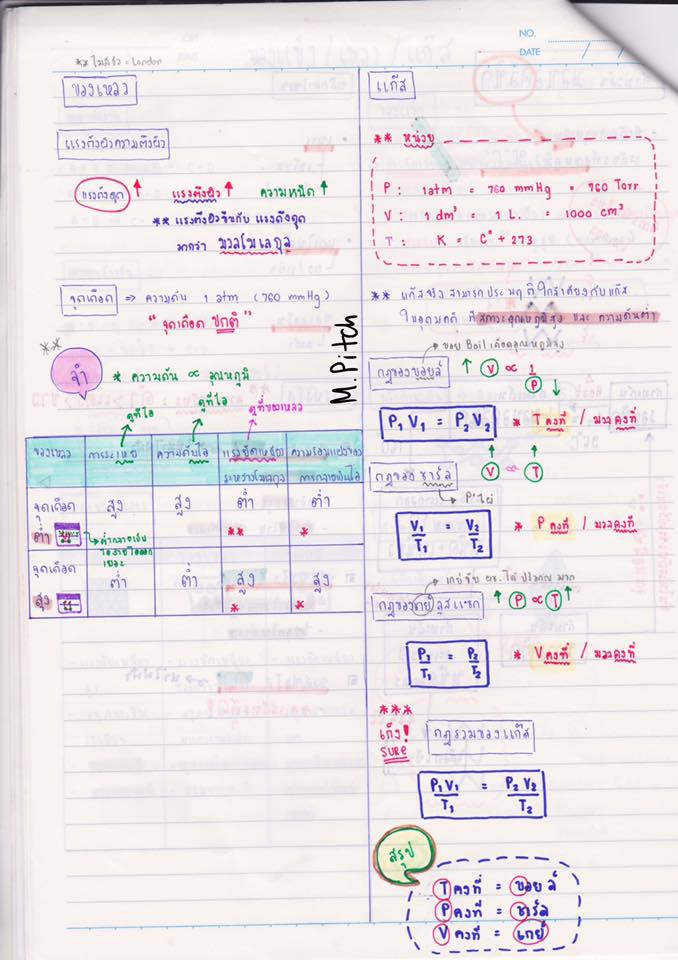 NO.
DATE / /
** ไม่มีขั้ว = London
ของเหลว
แรงตึงผิวความตึงผิว
แรงดึงดูด ↑ แรงตึงผิว ↑ ความหนืด ↑
** แรงตึงผิวขึ้นกับ แรงดึงดูด
มากกว่า มวลโมเลกุล
จุดเดือด ⇒ ความดัน 1 atm (760 mmHg)
" จุดเดือด ปกติ "
M.Pitch
**
จำ
* ความดัน ∝ อุณหภูมิ
ดูที่ไอ ดูที่ไอ ดูที่ของเหลว
ของเหลว การระเหย ความดันไอ แรงยึดเหนี่ยวระหว่างโมเลกุล ความร้อนแฝงของการกลายเป็นไอ
จุดเดือด สูง สูง ต่ำ ต่ำ
ต่ำ ** *
จุดเดือด ต่ำ ต่ำ สูง สูง
สูง * *
แก๊ส
** หน่วย
P : 1 atm = 760 mmHg = 760 Torr
V : 1 dm³ = 1 L. = 1000 cm³
T : K = C° + 273
** แก๊สจริง สามารถประพฤติใกล้เคียงกับแก๊ส
ในอุดมคติ ที่ สภาวะอุณหภูมิสูง และ ความดันต่ำ
บอย Boil เดือดอุณหภูมิสูง
กฎของบอยล์ ↑ V ∝ 1/P ↓
P₁V₁ = P₂V₂ * T คงที่ / มวลคงที่
กฎของ ชาร์ล V ∝ T
V₁/T₁ = V₂/T₂ * P คงที่ / มวลคงที่
กฎของเกย์ลูสแซก ↑ P ∝ T ↑
P₁/T₁ = P₂/T₂ * V คงที่ / มวลคงที่
***
เก็ง!
SURE
กฎรวมของแก๊ส
P₁V₁/T₁ = P₂V₂/T₂
สรุป
T คงที่ = บอยล์
P คงที่ = ชาร์ล
V คงที่ = เกย์